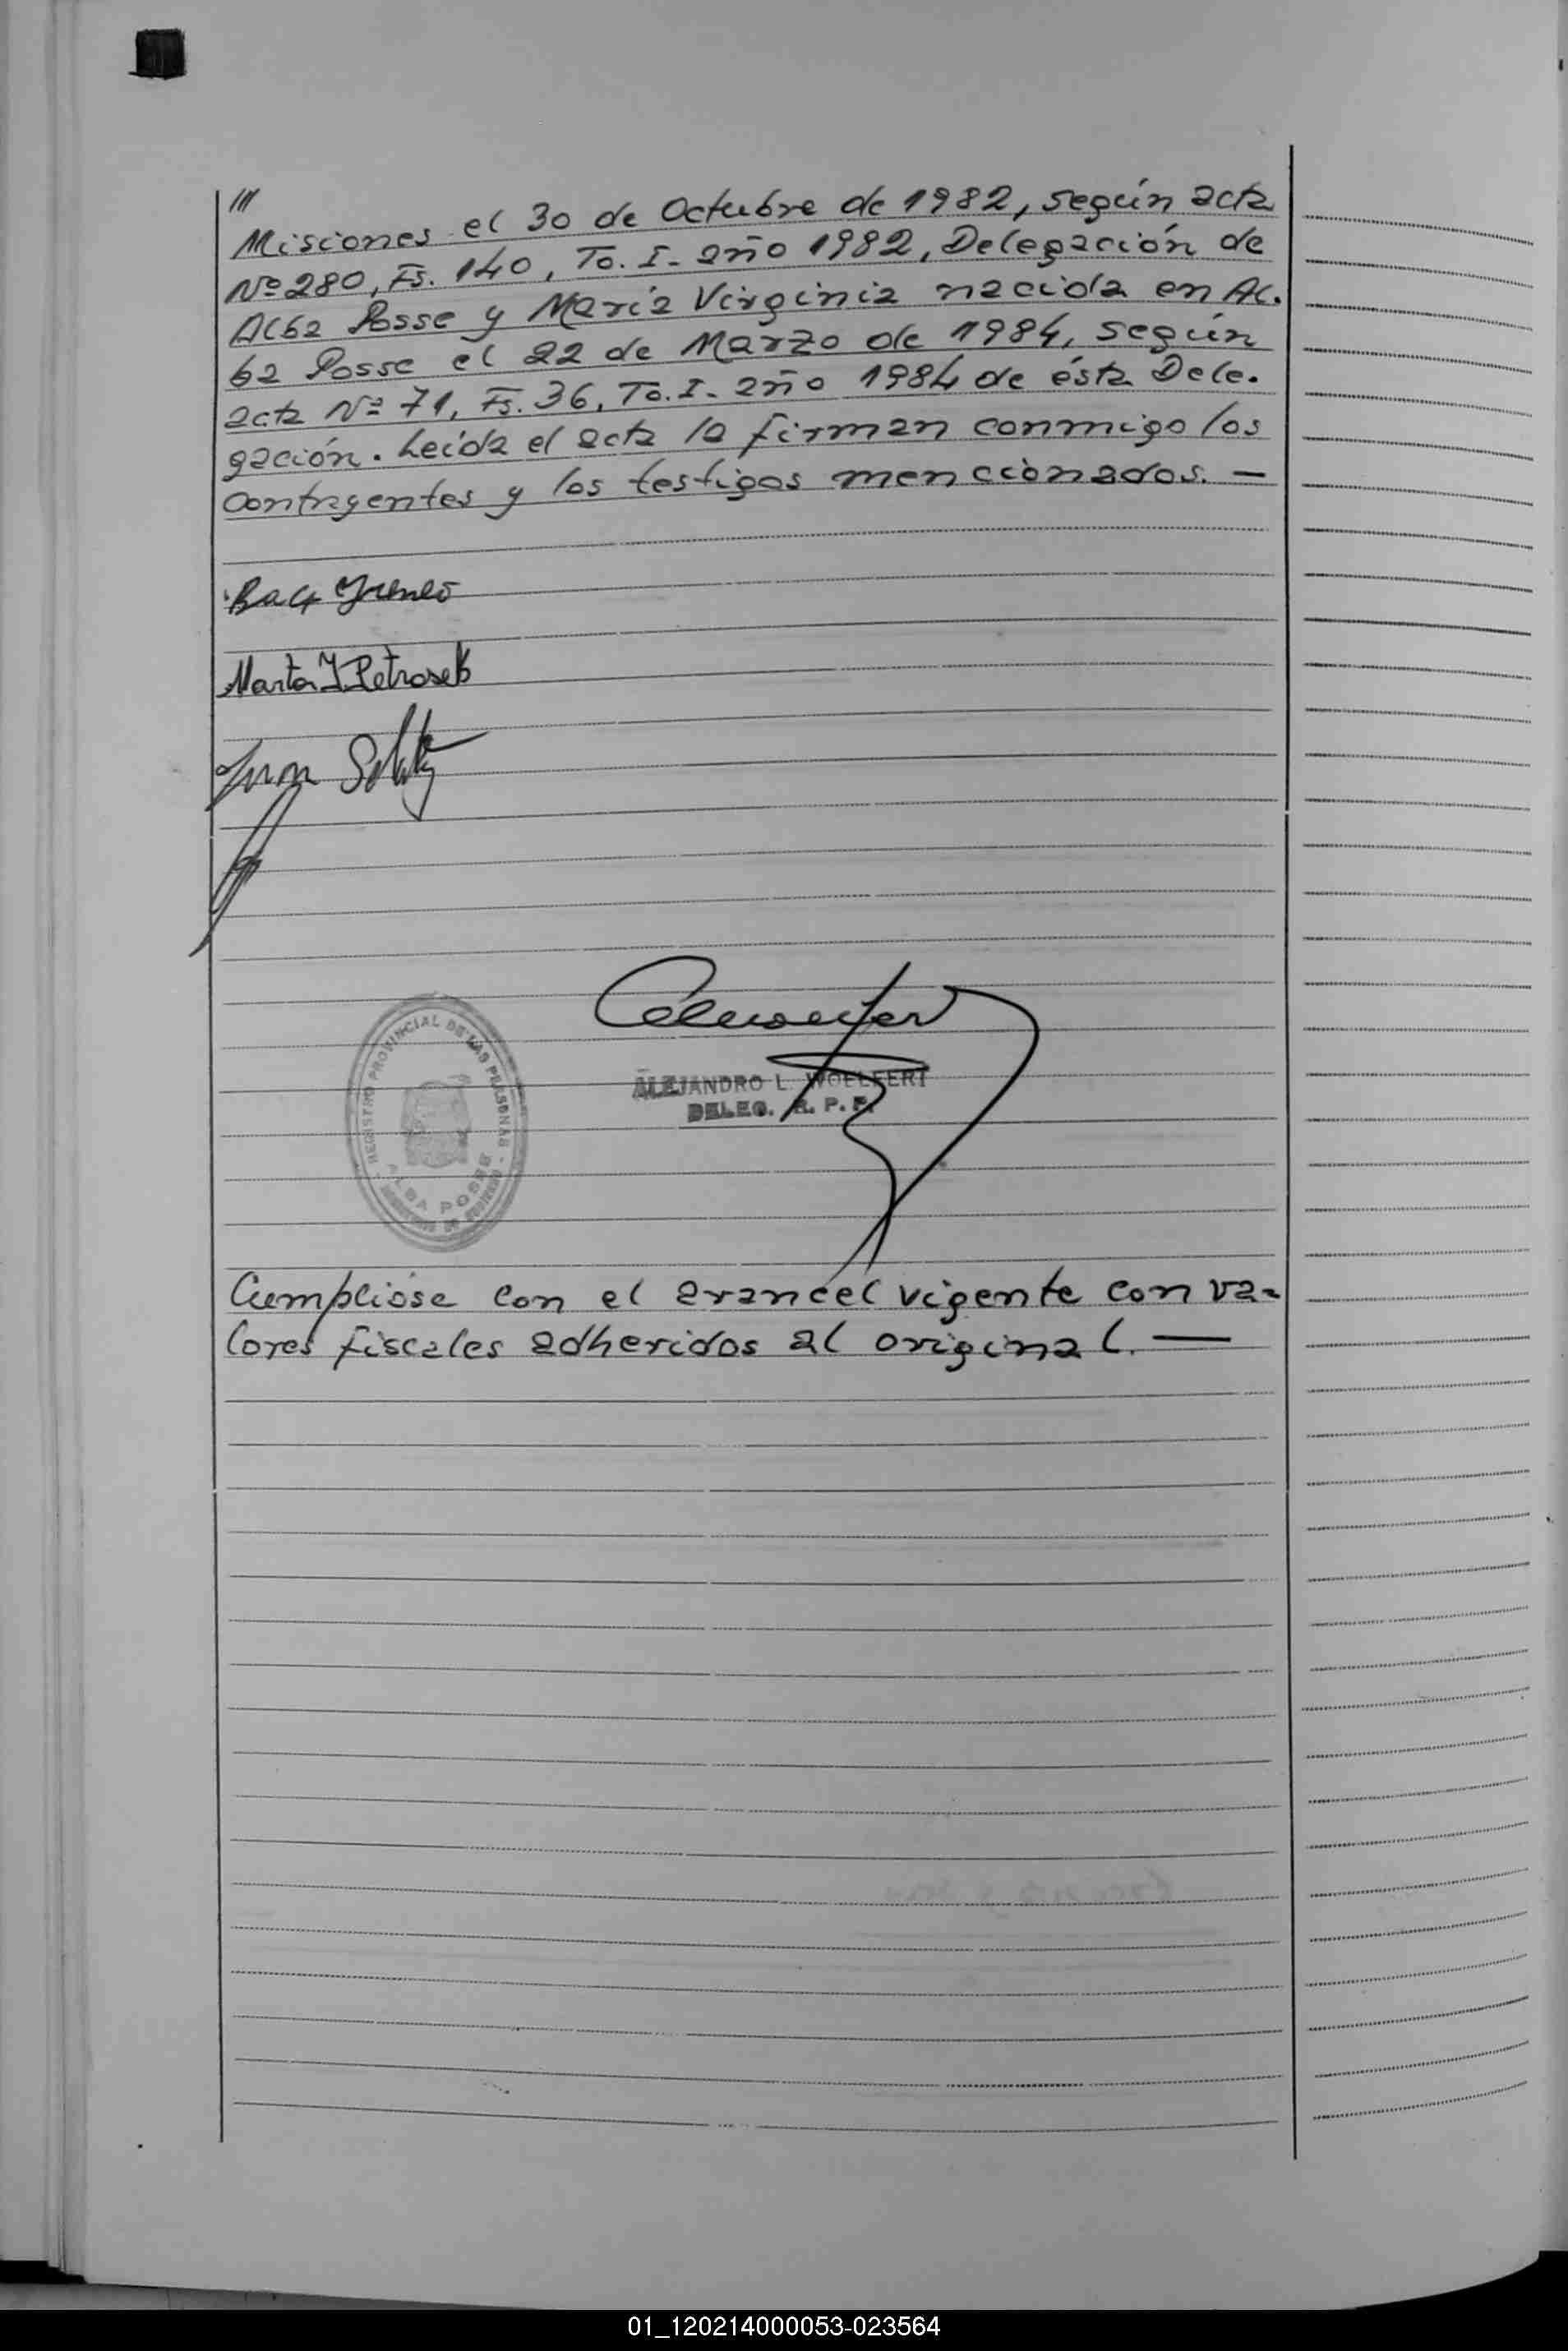 ///
Misiones el 30 de Octubre de 1982, según acta
Nº 280, Fs. 140, To. I- año 1982, Delegación de
Alba Posse y María Virginia nacida en Al-
ba Posse el 22 de Marzo de 1984, según
acta Nº 71, Fs. 36, To. I- año 1984 de ésta Dele-
gación. Leída el acta la firman conmigo los
contrayentes y los testigos mencionados. —
Marta I. Petrosek
Juan
REGISTRO PROVINCIAL DE LAS PERSONAS
ALBA POSSE
ALEJANDRO L. WOELFERT
DELEG. R. P. P.
Cumplióse con el arancel vigente con va-
lores fiscales adheridos al original. —
01_120214000053-023564